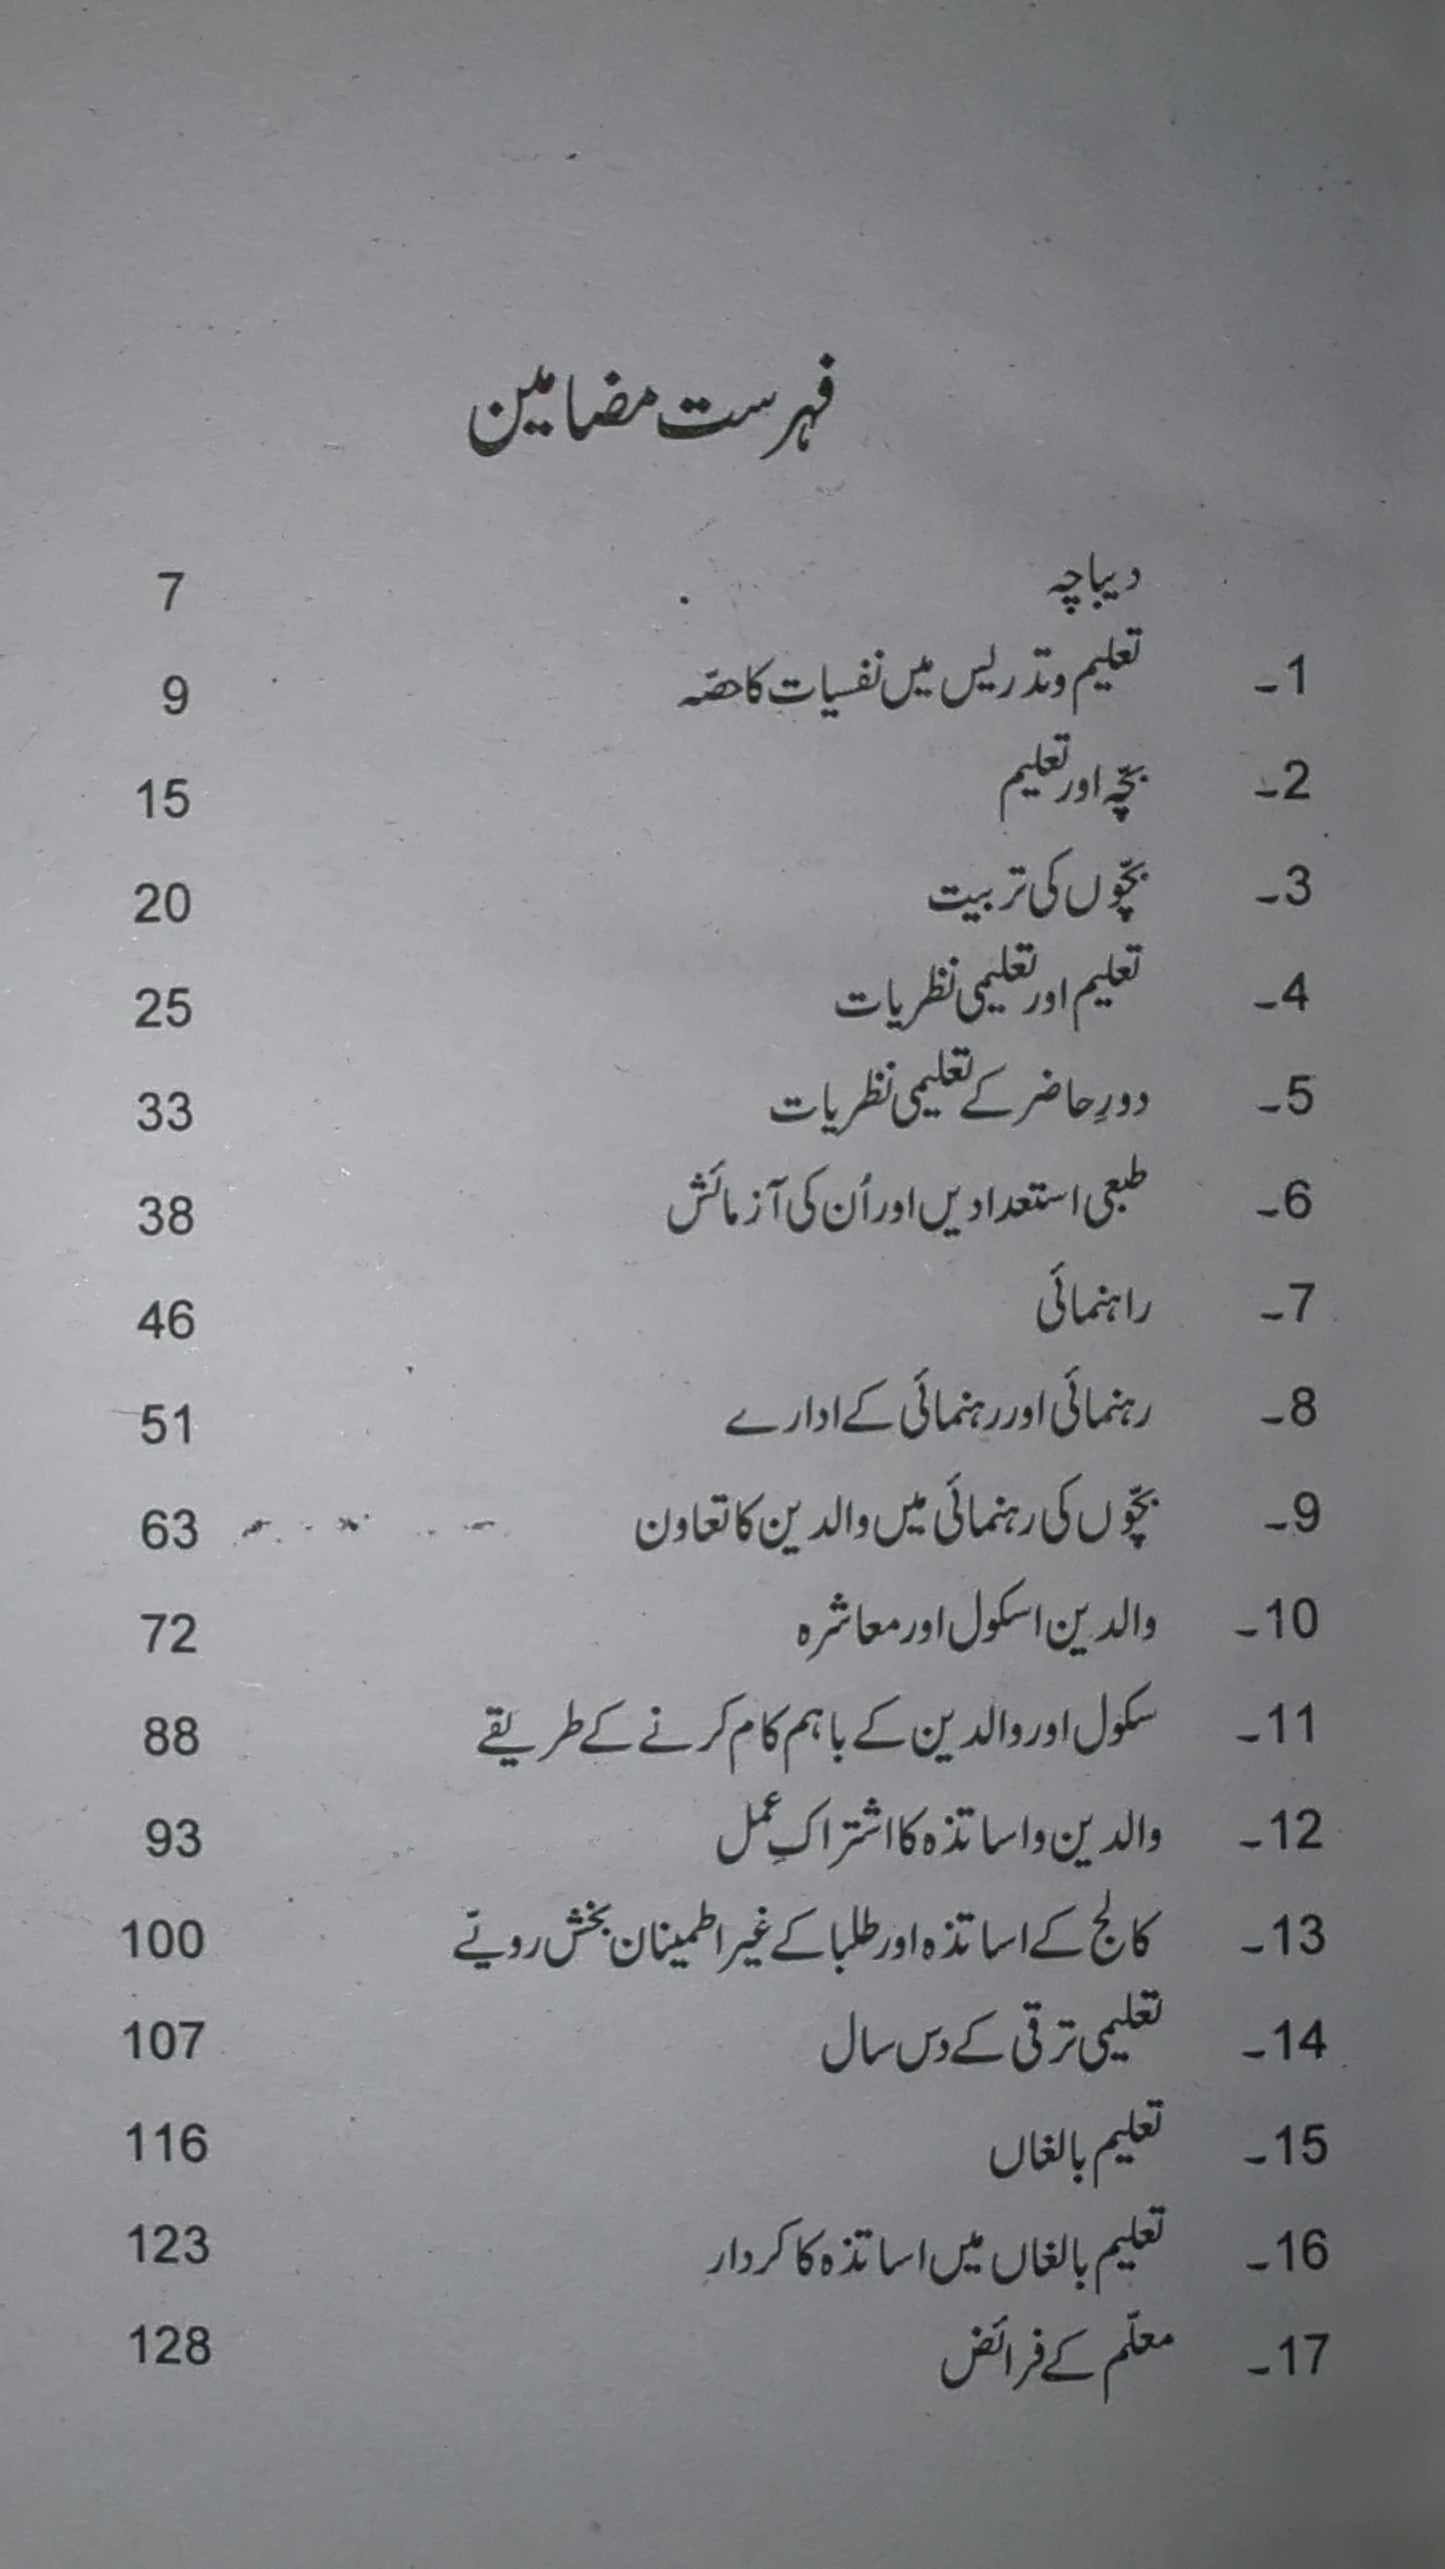 فہرست مضامین
دیباچہ 7
1۔ تعلیم و تدریس میں نفسیات کا حصّہ 9
2۔ بچّہ اور تعلیم 15
3۔ بچّوں کی تربیت 20
4۔ تعلیم اور تعلیمی نظریات 25
5۔ دورِ حاضر کے تعلیمی نظریات 33
6۔ طبعی استعدادیں اور اُن کی آزمائش 38
7۔ راہنمائی 46
8۔ رہنمائی اور رہنمائی کے ادارے 51
9۔ بچّوں کی رہنمائی میں والدین کا تعاون 63
10۔ والدین اسکول اور معاشرہ 72
11۔ سکول اور والدین کے باہم کام کرنے کے طریقے 88
12۔ والدین و اساتذہ کا اشتراکِ عمل 93
13۔ کالج کے اساتذہ اور طلبا کے غیر اطمینان بخش رویّے 100
14۔ تعلیمی ترقی کے دس سال 107
15۔ تعلیم بالغاں 116
16۔ تعلیم بالغاں میں اساتذہ کا کردار 123
17۔ معلّم کے فرائض 128